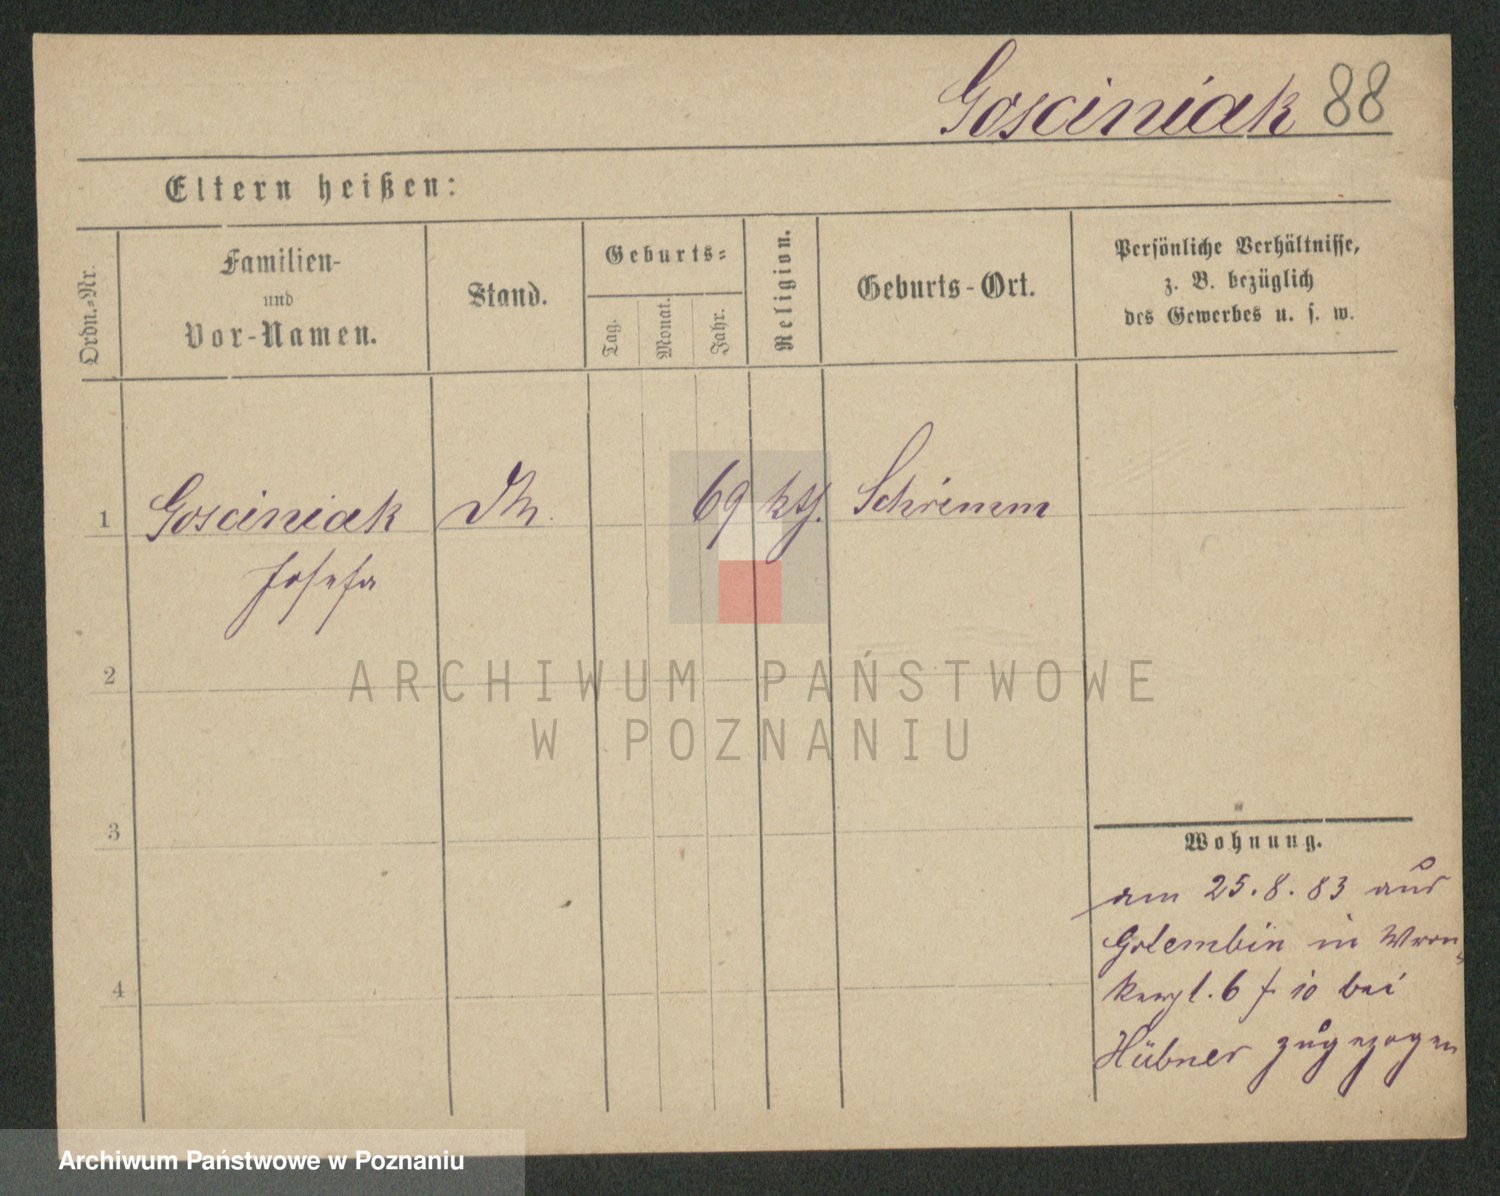 Gosciniak 88
Eltern heißen:
Ordn.-Nr.
Familien-
und
Vor-Namen.
Stand.
Geburts-
Tag.
Monat.
Jahr.
Religion.
Geburts-Ort.
Persönliche Verhältnisse,
z. B. bezüglich
des Gewerbes u. s. w.
1 Gosciniak 69 kth. Schrimm
Josefa
2
3
4
Wohnung.
am 25.8.83 aus
Golembin in Wron-
6 10 bei
Hübner zugezogen
ARCHIWUM PAŃSTWOWE
W POZNANIU
Archiwum Państwowe w Poznaniu